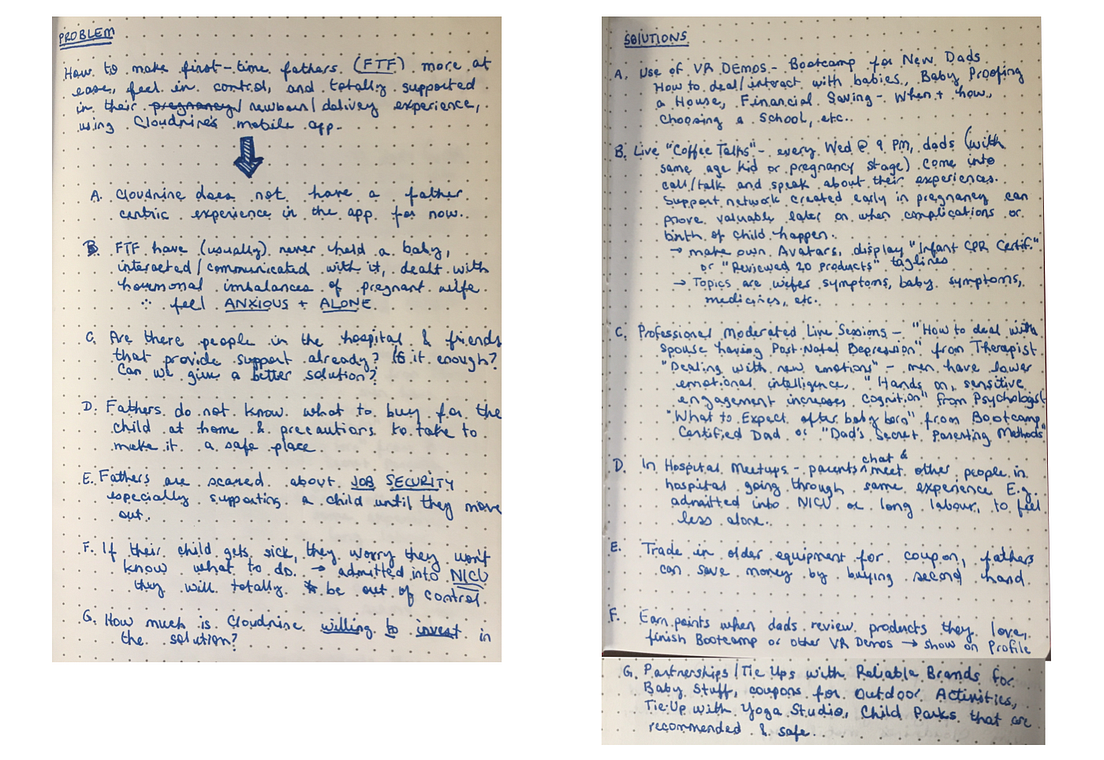 PROBLEM
How to make first-time fathers (FTF) more at
ease, feel in control, and totally supported
in their pregnancy/newborn/delivery experience,
using Cloudnine's mobile app.
A. Cloudnine does not have a father
centric experience in the app for now.
B. FTF have (usually) never held a baby,
interacted/communicated with it, dealt with
hourmonal imbalances of pregnant wife.
∴ feel ANXIOUS + ALONE.
C. Are there people in the hospital & friends
that provide support already? Is it enough?
Can we give a better solution?
D. Fathers do not know what to buy for the
child at home & precautions to take to
make it a safe place.
E. Fathers are scared about JOB SECURITY
especially supporting a child until they move
out.
F. If their child gets sick, they worry they won't
know what to do. → admitted into NICU
they will totally be out of control.
G. How much is Cloudnine willing to invest in
the solution?
SOLUTIONS
A. Use of VR DEMOS - Bootcamp for New Dads
How to deal/interact with babies, Baby Proofing
a House, Financial Saving - When + how,
Choosing a School, etc..
B. Live "Coffee Talks" - every Wed @ 9 PM, dads (with
same age kid or pregnancy stage) come into
call/talk and speak about their experiences.
Support network created early in pregnancy can
prove valuable later on when complications or
birth of child happen.
→ make own Avatars, display "Infant CPR Certif."
or "Reviewed 20 Products" taglines
→ Topics are wifes symptoms, baby symptoms,
medicines, etc.
C. Professional Moderated Live Sessions - "How to deal with
spouse having Post-Natal Depression" from Therapist
"Dealing with new emotions" - men have lower
emotional intelligence. "Hands on, sensitive
engagement increases cognition" from Psychologist
"What to Expect after baby born" from Bootcamp
Certified Dad or "Dad's Secret Parenting Methods"
D. In Hospital Meetups - parents chat & meet other people in
hospital going through same experience E.g.
admitted into NICU or long labour, to feel
less alone.
E. Trade in older equipment for coupon, fathers
can save money by buying second hand.
F. Earn points when dads review products they love,
finish Bootcamp or other VR Demos → show on Profile
G. Partnerships/Tie Ups with Reliable Brands for
Baby Stuff, coupons for Outdoor Activities,
Tie Up with Yoga Studio, Child Parks that are
recommended & safe.